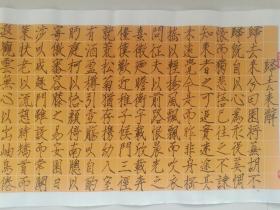 歸去來辭
歸去來兮田園將蕪胡不
歸既自以心為形役奚惆
悵而獨悲悟已往之不諫
知來者之可追實迷途其
未遠覺今是而昨非舟遙
遙以輕颺風飄飄而吹衣
問征夫以前路恨晨光之
熹微乃瞻衡宇載欣載奔
僮僕歡迎稚子候門三徑
就荒松菊猶存攜幼入室
有酒盈樽引壺觴以自酌
眄庭柯以怡顏倚南窗以
寄傲審容膝之易安園日
涉以成趣門雖設而常關
策扶老以流憩時矯首而
遐觀雲無心以出岫鳥倦